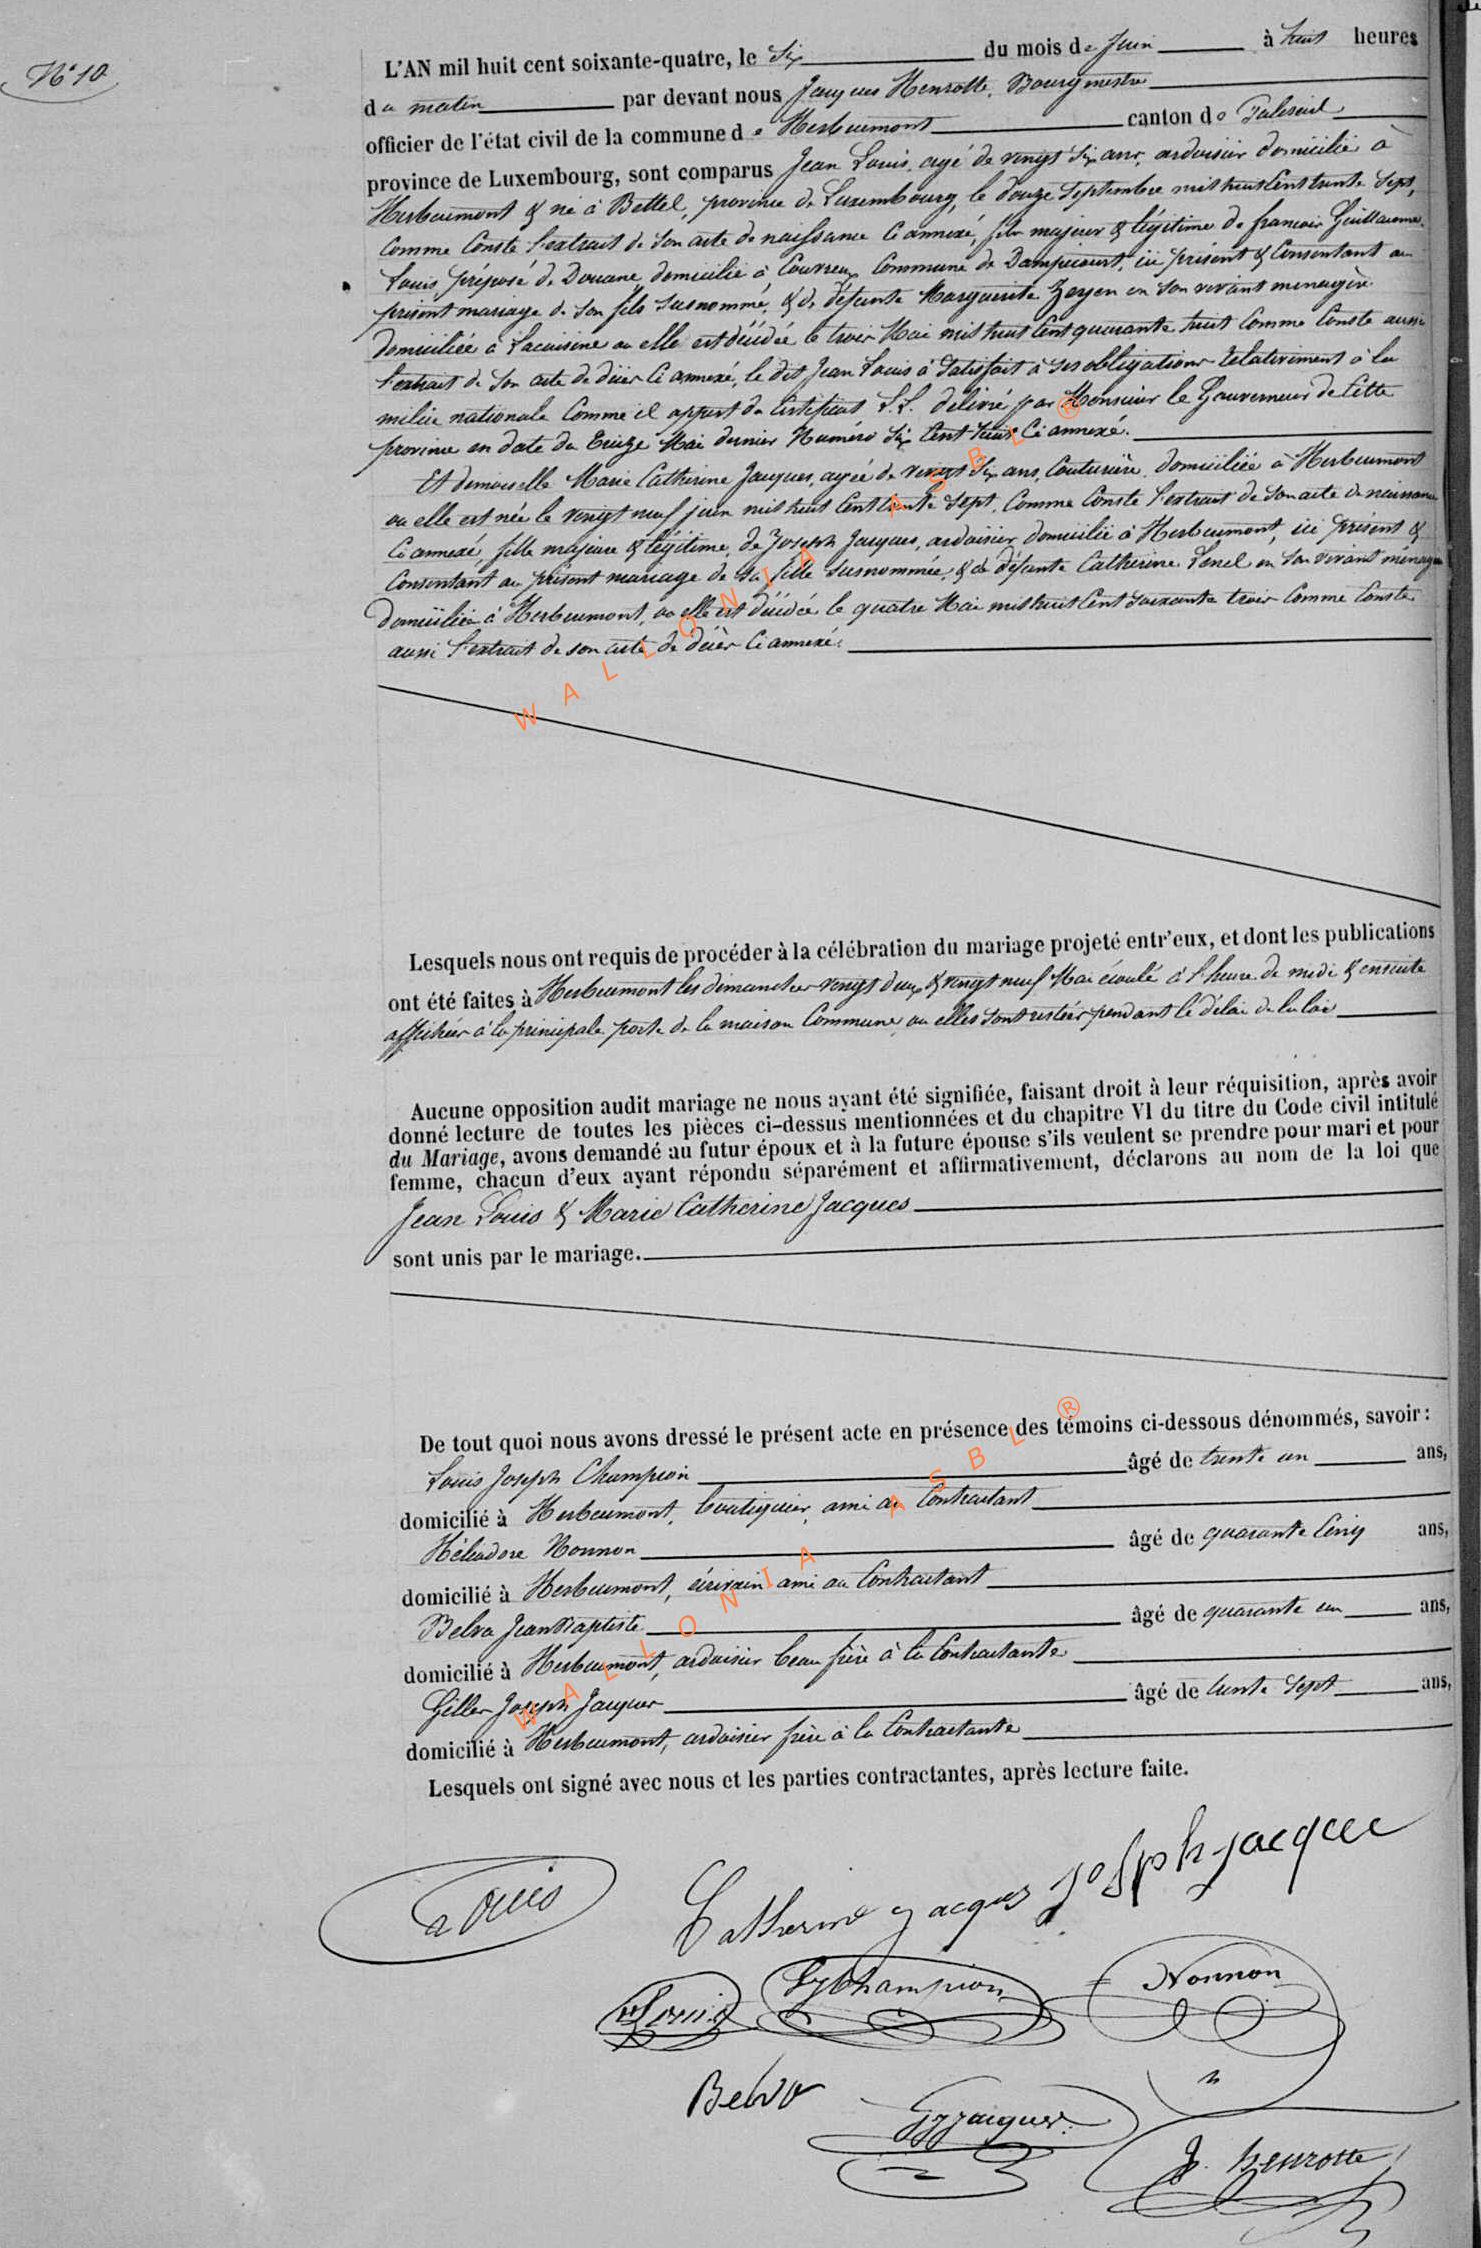 N° 10
L'AN mil huit cent soixante-quatre, le Six du mois de Juin à huit heures
du matin par devant nous Jacques Henrotte, Bourgmestre
officier de l'état civil de la commune de Herbeumont canton de Paliseul
province de Luxembourg, sont comparus Jean Louis, agé de vingt six ans, ardoisier domicilié à
Herbeumont & né à Bettel, province de Luxembourg, le douze Septembre mil huit Cent trente Sept,
Comme Conste l'extrait de son acte de naissance Ci annexé, fils majeur & légitime de françois Guillaume
Louis, préposé de Douane, domicilié à Couvreux Commune de Dampicourt, ici présent & Consentant au
présent mariage de son fils susnommé, & de défunte Marguerite Zeyen en son vivant menagère
domiciliée à Lacuisine ou elle est décédée le trois Mai mil huit Cent quarante huit Comme Conste aussi
l'extrait de son acte de décès Ci annexé, le dit Jean Louis à Satisfait à ses obligations relativement à la
milice nationale Comme il appert du Certificat L.L. delivré par Monsieur le Gouverneur de Cette
province en date du Treize Mai dernier Numéro Six Cent huit Ci annexé.
Et demoiselle Marie Catherine Jacques, agée de vingt Six ans, Couturière, domiciliée à Herbeumont
ou elle est née le vingt neuf juin mil huit Cent trente Sept, Comme Conste l'extrait de son acte de naissance
Ci annexé, fille majeure & légitime, de Joseph Jacques, ardoisier, domicilié à Herbeumont, ici présent &
Consentant au présent mariage de sa fille susnommée, & de défunte Catherine Lenel en son vivant ménagère
domiciliée à Herbeumont, ou elle est décédée le quatre Mai mil huit Cent soixante trois Comme Conste
aussi l'extrait de son acte de décès Ci annexé.
Lesquels nous ont requis de procéder à la célébration du mariage projeté entr'eux, et dont les publications
ont été faites à Herbeumont les dimanches vingt deux & vingt neuf Mai écoulé à l'heure de midi & ensuite
affichées à la principale porte de la maison Commune ou elles sont restées pendant le délai de la loi
Aucune opposition audit mariage ne nous ayant été signifiée, faisant droit à leur réquisition, après avoir
donné lecture de toutes les pièces ci-dessus mentionnées et du chapitre VI du titre du Code civil intitulé
du Mariage, avons demandé au futur époux et à la future épouse s'ils veulent se prendre pour mari et pour
femme, chacun d'eux ayant répondu séparément et affirmativement, déclarons au nom de la loi que
Jean Louis & Marie Catherine Jacques
sont unis par le mariage.
De tout quoi nous avons dressé le présent acte en présence des témoins ci-dessous dénommés, savoir :
Louis Joseph Champion âgé de trente un ans,
domicilié à Herbeumont, boutiquier, ami au Contractant
Héliodore Nonnon âgé de quarante Cinq ans,
domicilié à Herbeumont, écrivain ami au Contractant
Belva Jean Baptiste âgé de quarante un ans,
domicilié à Herbeumont, ardoisier beau frère à la Contractante
Gilles Joseph Jacques âgé de trente Sept ans,
domicilié à Herbeumont, ardoisier frère à la Contractante
Lesquels ont signé avec nous et les parties contractantes, après lecture faite.
Louis
Catherine Jacques Joseph Jacques
Louis LJChampion Nonnon
Belva
GJJacques
J. henrotte
WALLONIA ASBL ®
WALLONIA ASBL ®